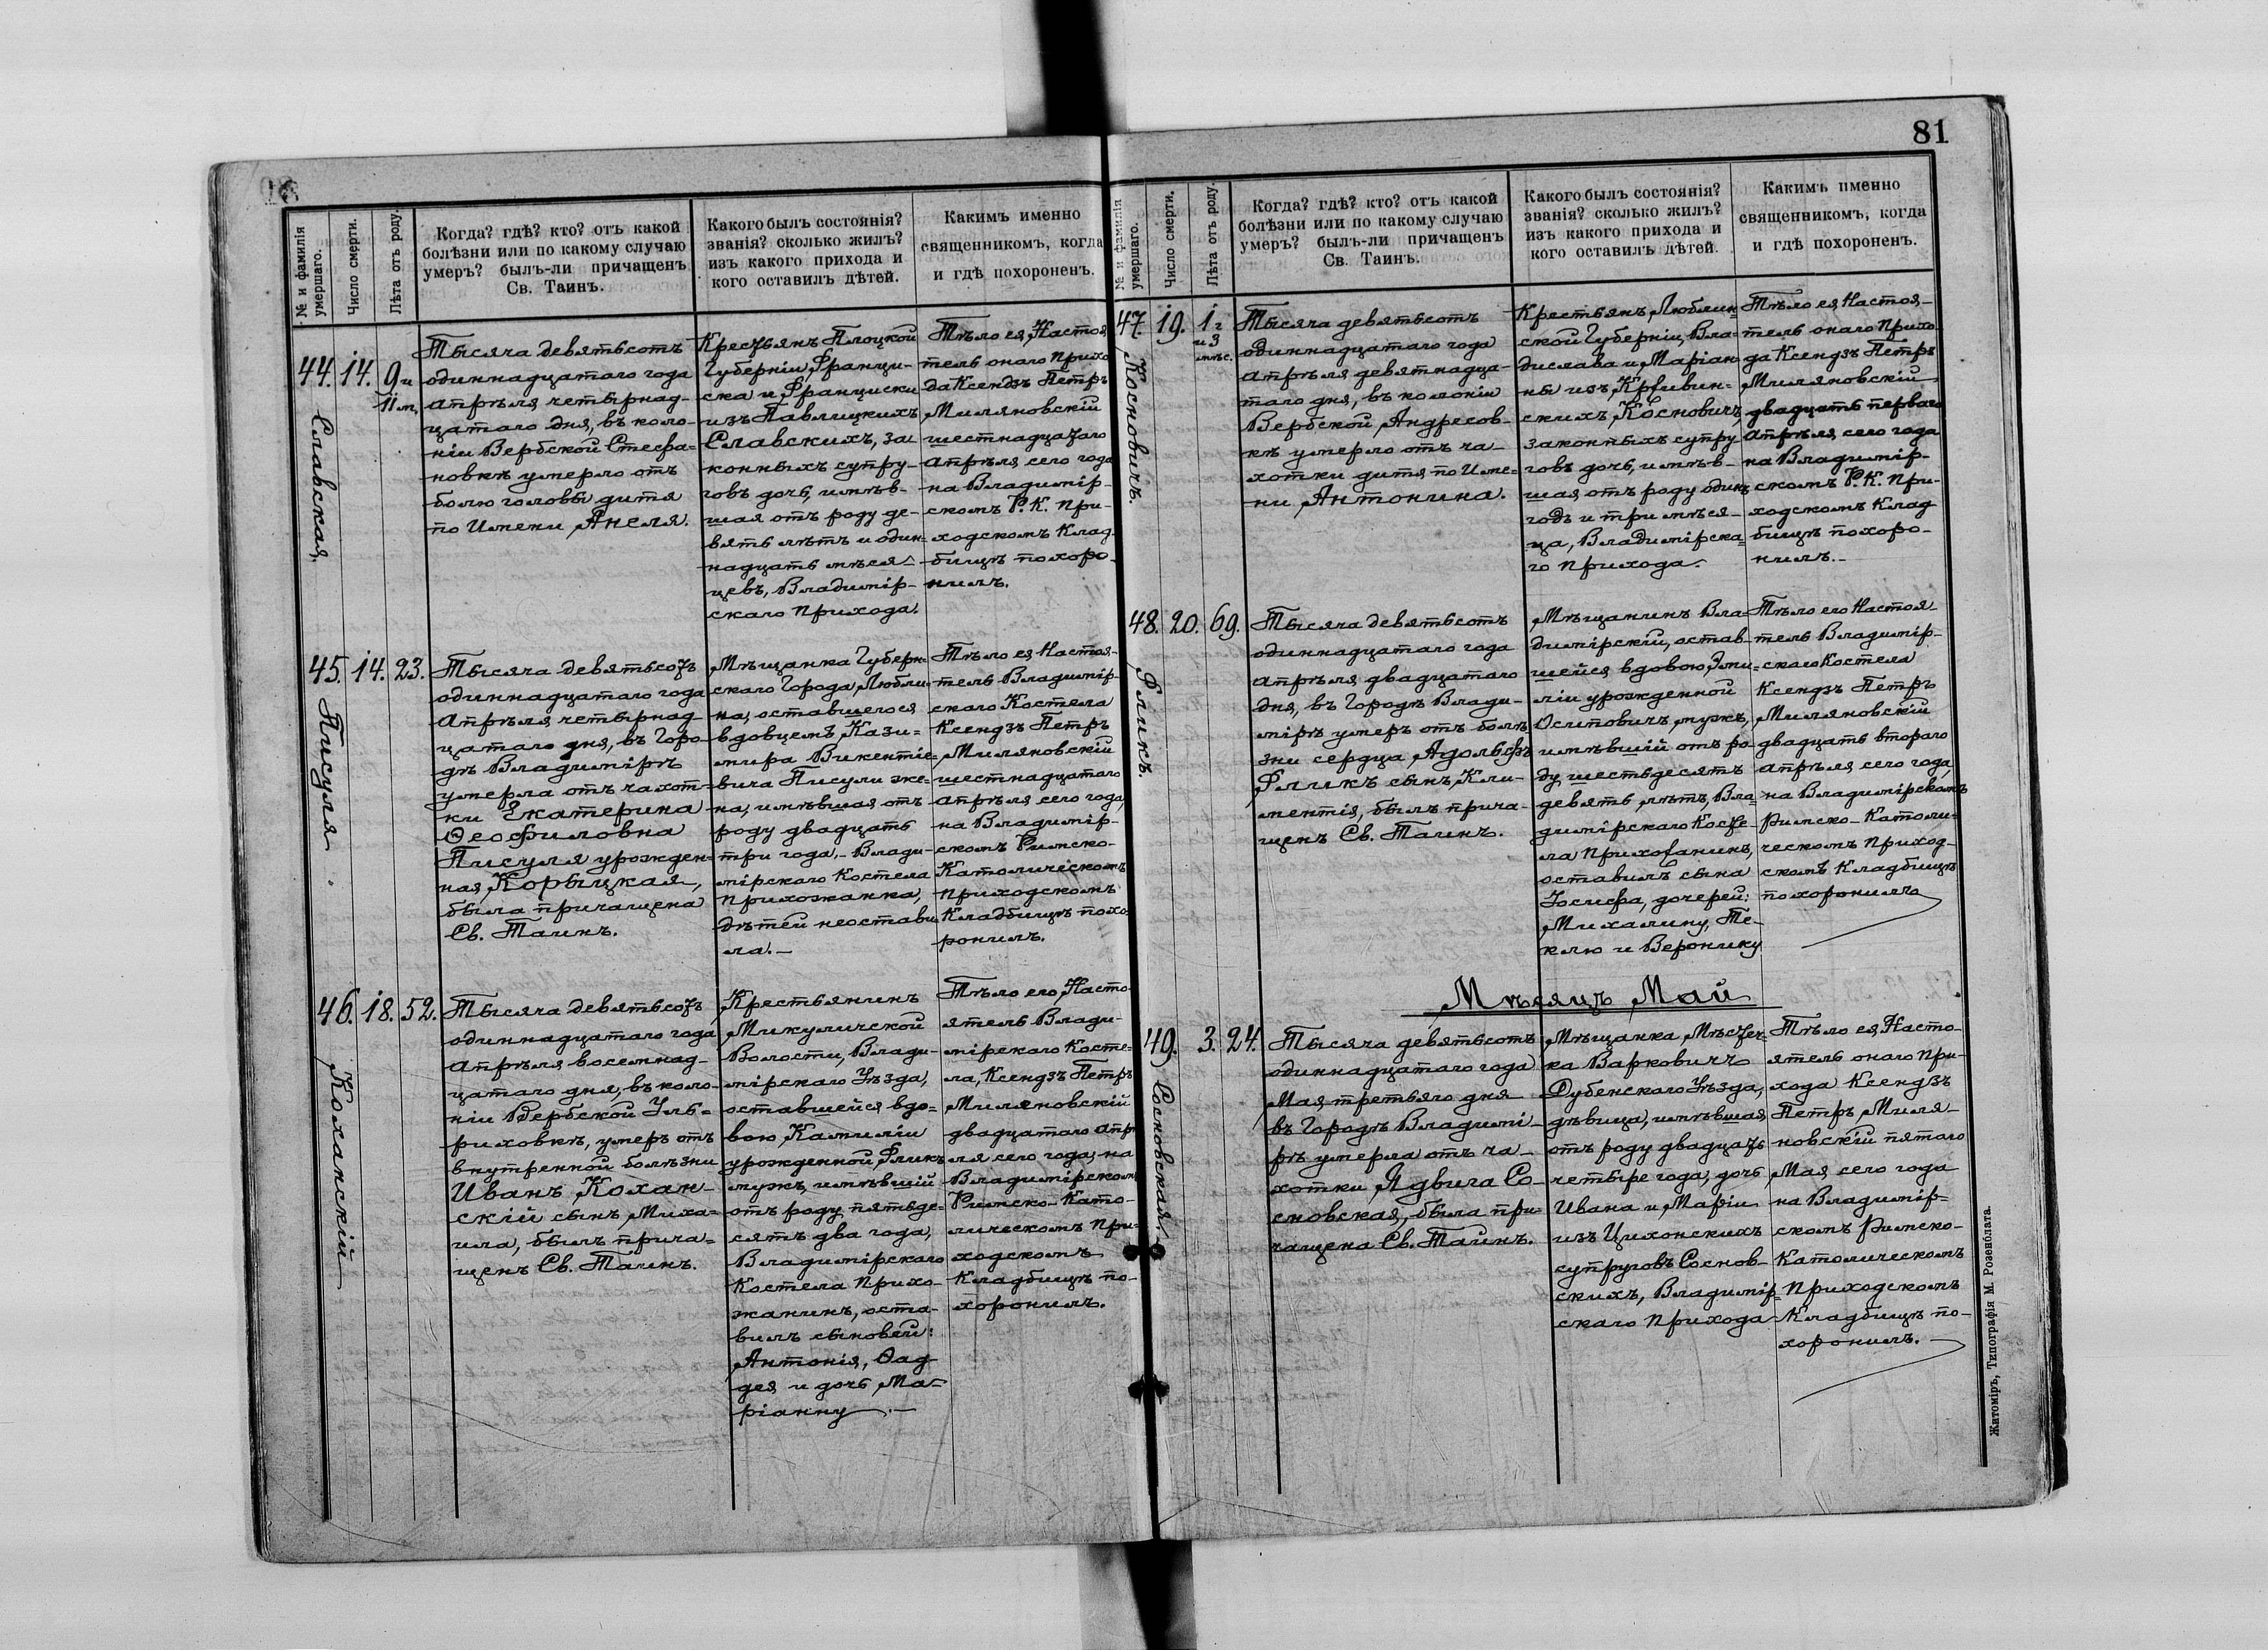 № и фамилія
умершаго.
Число смерти.
Лѣта отъ роду.
Когда? гдѣ? кто? отъ какой
болѣзни или по какому случаю
умеръ? былъ-ли причащенъ
Св. Таинъ.
Какого былъ состоянія?
званія? сколько жилъ?
изъ какого прихода и
кого оставилъ дѣтей.
Какимъ именно
священникомъ, когда
и гдѣ похороненъ.
44.
Славская
14.
9 и
11 м.
Тысяча девятьсотъ
одиннадцатаго года
Апрѣля четырнад-
цатаго дня, въ коло-
ніи Вербской Стефа=
новкѣ умерло отъ
болю головы дитя
по Имени Анеля.
Крестьянъ Плоцкой
Губерніи, Франци-
ска и Франциски
изъ Павлицкихъ
Славскихъ, за
конныхъ супру-
говъ дочь, имѣв-
шая отъ роду де-
вять лѣтъ и один-
надцать мѣся-
цевъ, Владимір-
скаго прихода.
Тѣло ея, Настоя
тель онаго прихо
да Ксендзъ Петръ
Миляновскій
шестнадцатаго
Апрѣля сего года
на Владимір-
скомъ Р. К. при-
ходскомъ Клад-
бищѣ похоро-
нилъ.
45.
Писуля
14.
23.
Тысяча девятьсотъ
одиннадцатаго года
Апрѣля четырнад-
цатаго дня, въ Горо-
дѣ Владимірѣ
умерла отъ чахот-
ки Екатерина
Ѳеофиловна
Писуля урожден-
ная Корыцкая,
была причащена
Св. Таинъ.
Мѣщанка Губерн-
скаго Города Любли-
на, оставшегося
вдовцемъ, Кази=
мира Викентіе-
вича Писули же-
на, имѣвшая отъ
роду двадцать
три года, - Влади-
мірскаго Костела
прихожанка,
дѣтей неостави
ла. -
Тѣло ея Настоя-
тель Владимір-
скаго Костела
Ксендзъ Петръ
Миляновскій
шестнадцатаго
Апрѣля сего года,
на Владимір-
скомъ Римско-
Католическомъ
приходскомъ
Кладбищѣ похо
ронилъ.
46.
Коханскій
18.
52.
Тысяча девятьсотъ
одиннадцатаго года
Апрѣля восемнад-
цатаго дня, въ коло-
ніи Вербской Уль=
риховкѣ, умеръ отъ
внутренной болѣзни
Иванъ Кохан-
скій сынъ Миха=
ила, былъ прича=
щенъ Св. Таинъ.
Крестьянинъ
Микуличской
Волости, Влади-
мірскаго Уѣзда,
оставшейся вдо=
вою, Камиліи
урожденной Фликъ
мужъ, имѣвшій
отъ роду пятьде=
сятъ два года,
Владимірскаго
Костела прихо-
жанинъ, оста-
вилъ сыновей:
Антонія, Ѳад
дея и дочь Ма-
ріанну. -
Тѣло его, Насто
ятель Влади-
мірскаго Косте=
ла, Ксендзъ Петръ
Миляновскій
двадцатаго Апрѣ
ля сего года, на
Владимірском
Римско-Като-
лическомъ при-
ходскомъ
Кладбищѣ по-
хоронилъ.
81
№ и фамилія
умершаго.
Число смерти.
Лѣта отъ роду.
Когда? гдѣ? кто? отъ какой
болѣзни или по какому случаю
умеръ? былъ-ли причащенъ
Св. Таинъ.
Какого былъ состоянія?
званія? сколько жилъ?
изъ какого прихода и
кого оставилъ дѣтей.
Какимъ именно
священникомъ, когда
и гдѣ похороненъ.
47.
Косновичъ.
19.
1 г
и 3
мѣс.
Тысяча девятьсотъ
одиннадцатаго года
Апрѣля девятнадца-
таго дня, въ колоніи
Вербской Андресов-
кѣ умерло отъ ча-
хотки дитя по Име=
ни Антонина.
Крестьянъ, Люблин-
ской Губерніи, Вла-
дислава и Маріан-
ны изъ
скихъ Косновичъ
законныхъ супру
говъ дочь, имѣв-
шая отъ роду одинъ
годъ и три мѣся-
ца, Владимірска=
го прихода.
Тѣло ея, Настоя-
тель онаго прихо
да Ксендзъ Петръ
Миляновскій
двадцать перваго
Апрѣля сего года
на Владимір-
скомъ Р. К. при-
ходскомъ Клад
бищѣ похоро-
нилъ. -
48.
Фликъ.
20.
69.
Тысяча девятьсотъ
одиннадцатаго года
Апрѣля двадцатаго
дня, въ Городѣ Влади-
мірѣ умеръ отъ болѣ
зни сердца, Адольфъ
Фликъ сынъ, Кли-
ментія, былъ прича-
щенъ Св. Таинъ.
Мѣщанинъ Вла-
димірскій, остав
шейся вдовою, Эми=
ліи урожденной
Оситовичъ, мужъ,
имѣвшій отъ ро-
ду шестьдесятъ
девять лѣтъ, Вла=
димірскаго Косте-
ла прихожанинъ,
оставилъ сына
Іосифа, дочерей:
Михалину, Те-
клю и Веронику
Тѣло его Настоя-
тель Владимір-
скаго Костела
Ксендзъ Петръ
Миляновскій
двадцать втораго
Апрѣля сего года,
на Владимірскомъ
Римско-Католи-
ческомъ приход-
скомъ Кладбищѣ
похоронилъ
Мѣсяцъ Май
49.
Сосновская.
3.
24.
Тысяча девятьсотъ
одиннадцатаго года
Мая, третьяго дня
въ Городѣ Владимі-
рѣ умерла отъ ча-
хотки Ядвига Со-
сновская, была при-
чащена Св. Таинъ.
Мѣщанка, Мѣстеч-
ка Варковичъ
Дубенскаго Уѣзда,
дѣвица, имѣвшая
отъ роду двадцать
четыре года, дочь
Ивана и Маріи
изъ Цихонскихъ
супруговъ Соснов-
скихъ, Владимір=
скаго прихода
Тѣло ея, Насто-
ятель онаго при-
хода Ксендзъ
Петръ Миля-
новскій пятаго
Мая сего года
на Владимір=
скомъ Римско-
Католическомъ
приходскомъ
Кладбищѣ по-
хоронилъ.
Житоміръ, Типографія М. Розенблата.